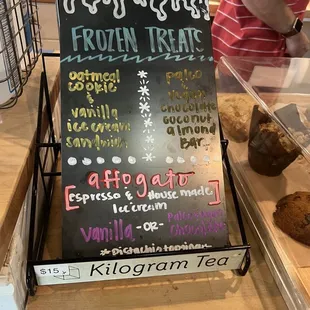 FROZEN TREATS
oatmeal
cookie
&
vanilla
ice cream
sandwich
paleo
&
chocolate
coconut
almond
Bar
affogato
Espresso & House made
Ice cream
Vanilla -or-
$15
Kilogram Tea